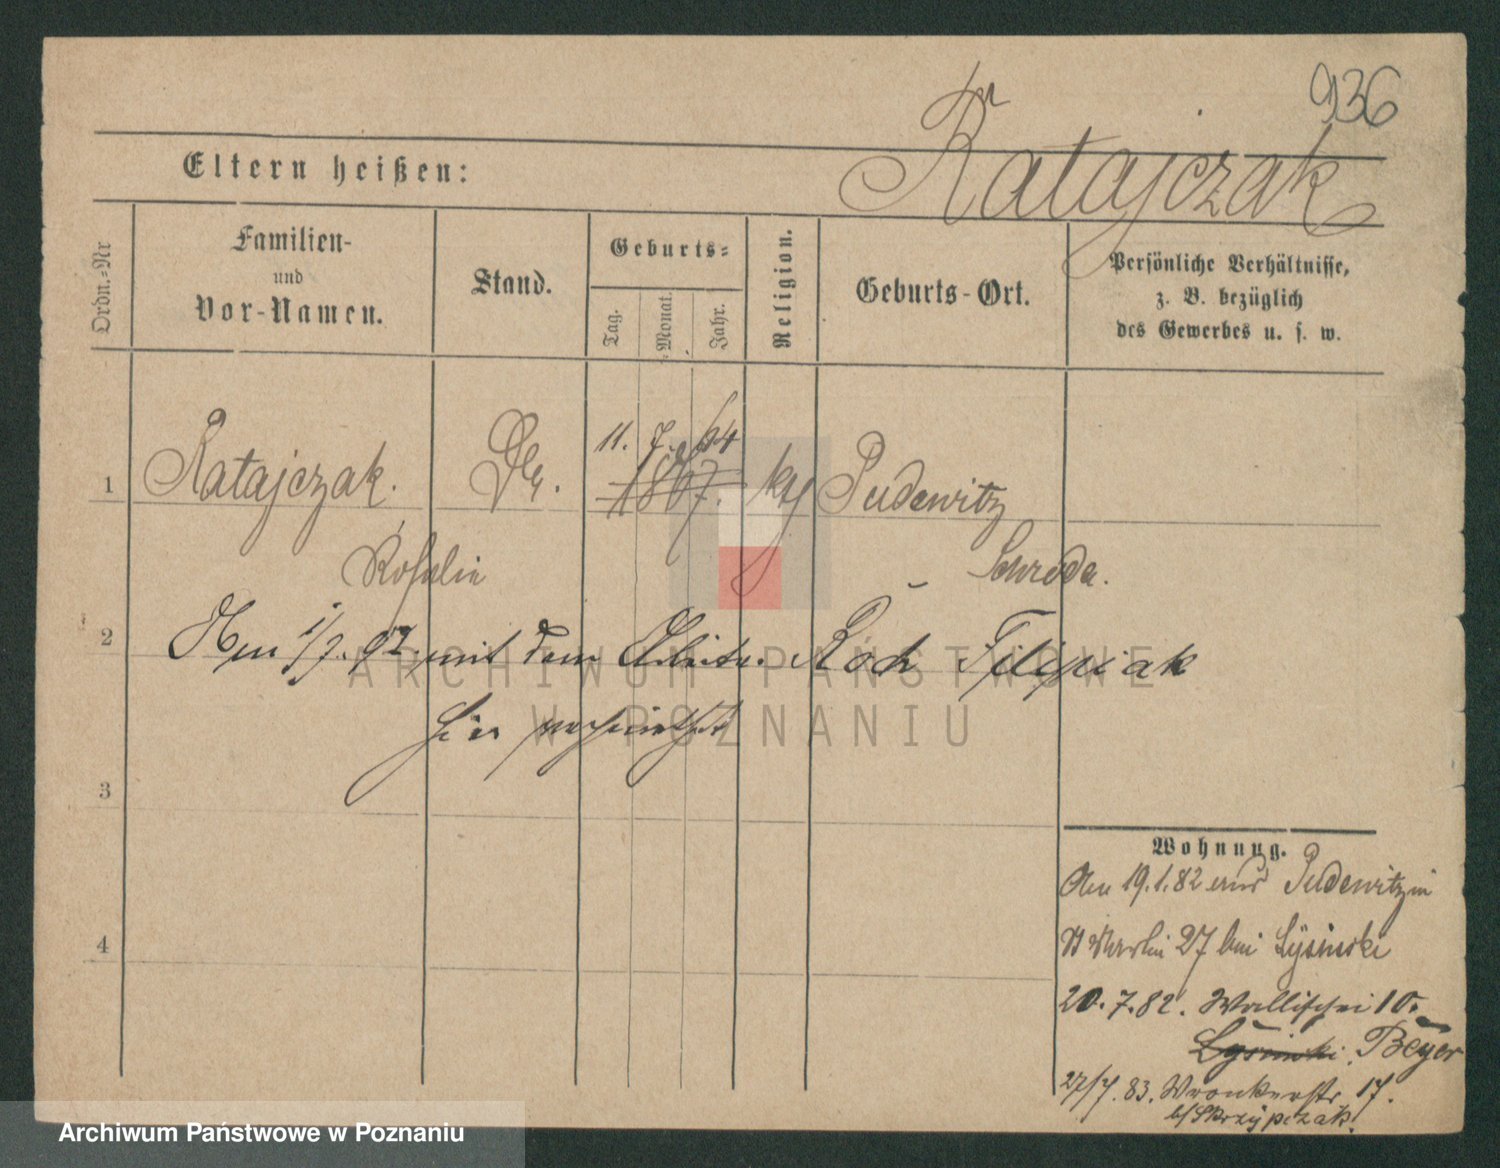 936
Ratajczak
Eltern heißen:
Ordn.-Nr
Familien-
und
Vor-Namen.
Stand.
Geburts-
Tag.
Monat.
Jahr.
Religion.
Geburts-Ort.
Persönliche Verhältnisse,
z. B. bezüglich
des Gewerbes u. s. w.
11. 7. 64
1 Ratajczak. 1867. kth Pudewitz
Rosalie Schroda.
2 Am 1/7. 92. mit dem Arbeiter Roch Filipiak
hier verheirathet
3
4
Wohnung.
Am 19.1.82 aus Pudewitz in
St Martin 27 bei Lysinski
20.7.82. Wallischei 10.
Lysinski. Beyer
27/7.83. Wronkerstr. 17.
b/ Skrzypczak.
ARCHIWUM PAŃSTWOWE
W POZNANIU
Archiwum Państwowe w Poznaniu